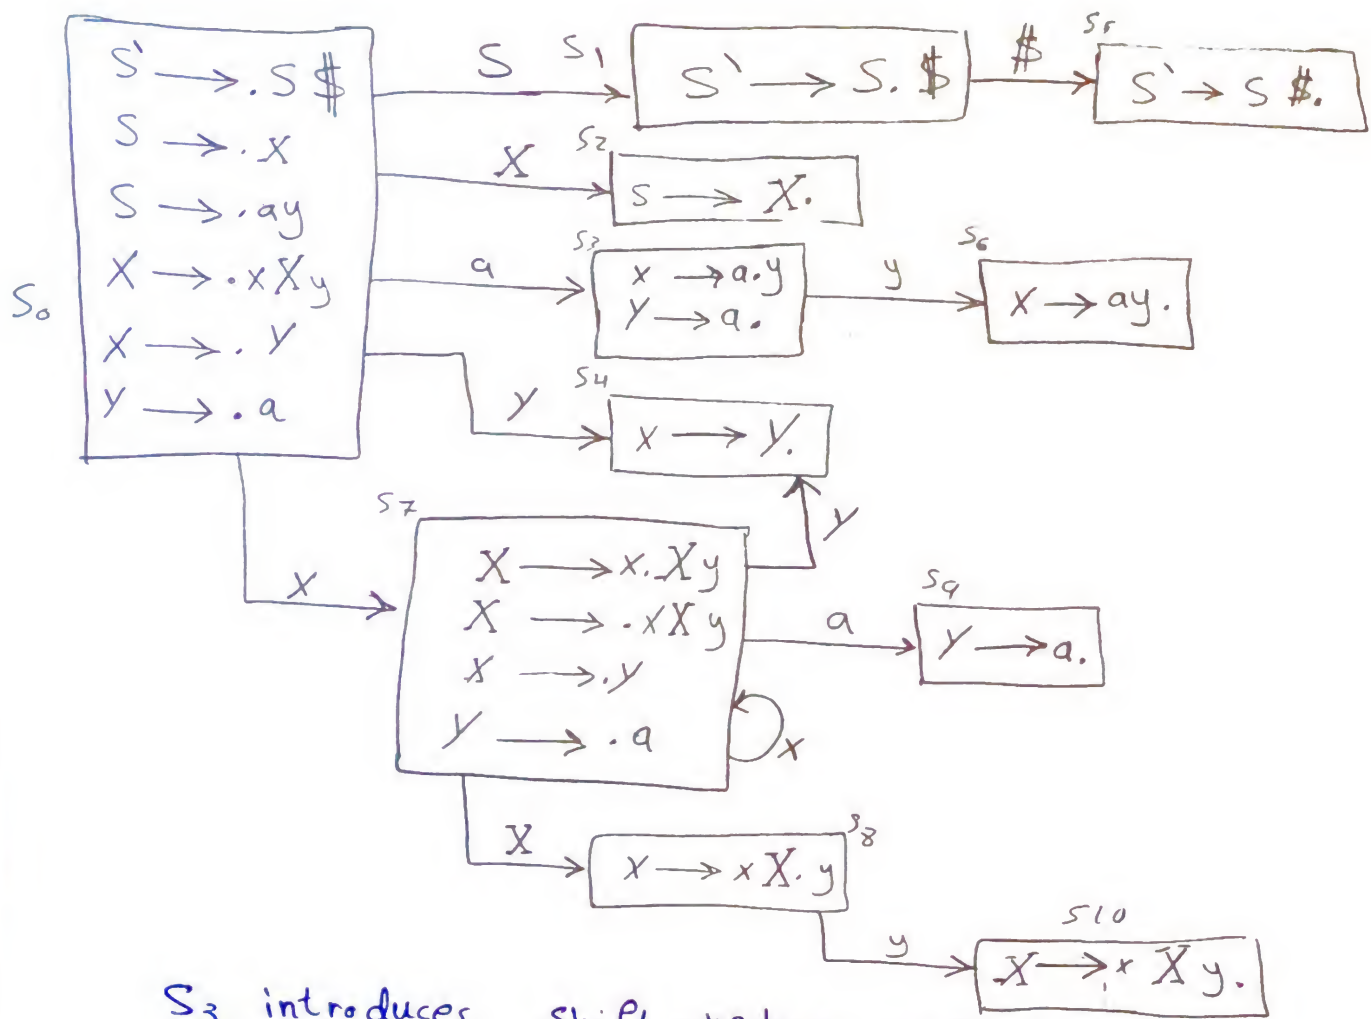 S` → .S$
S → .X
S → .ay
X → .xXy
X → .Y
Y → .a
S0
S
S1
S` → S.$
$
S5
S` → S$.
X
S2
S → X.
a
S3
x → a.y
Y → a.
y
S6
X → ay.
Y
S4
x → Y.
Y
x
S7
X → x.Xy
X → .xXy
x → .y
Y → .a
a
S9
Y → a.
x
X
S8
x → xX.y
y
S10
X → xXy.
S3 introduces